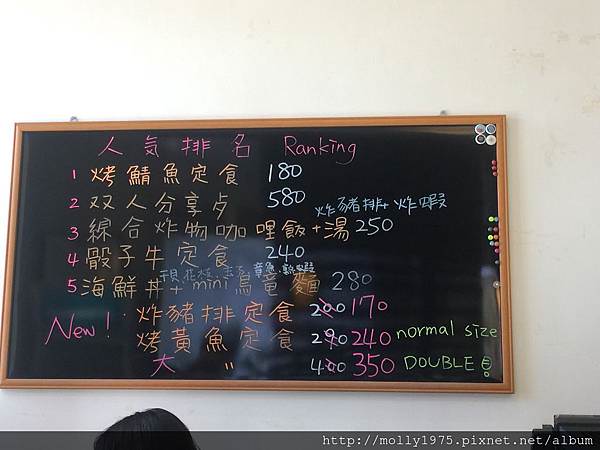 人気排名 Ranking
1 烤鯖魚定食 180
2 双人分享歺 580
炸豬排+炸蝦
3 綜合炸物咖哩飯+湯 250
4 骰子牛定食 240
干貝.花枝.
章魚.熟蝦
5 海鮮丼+mini烏竜麵 280
New! 炸豬排定食 200 170
烤黃魚定食 290 240 normal size
大 " 400 350 DOUBLE
http://molly1975.pixnet.net/album